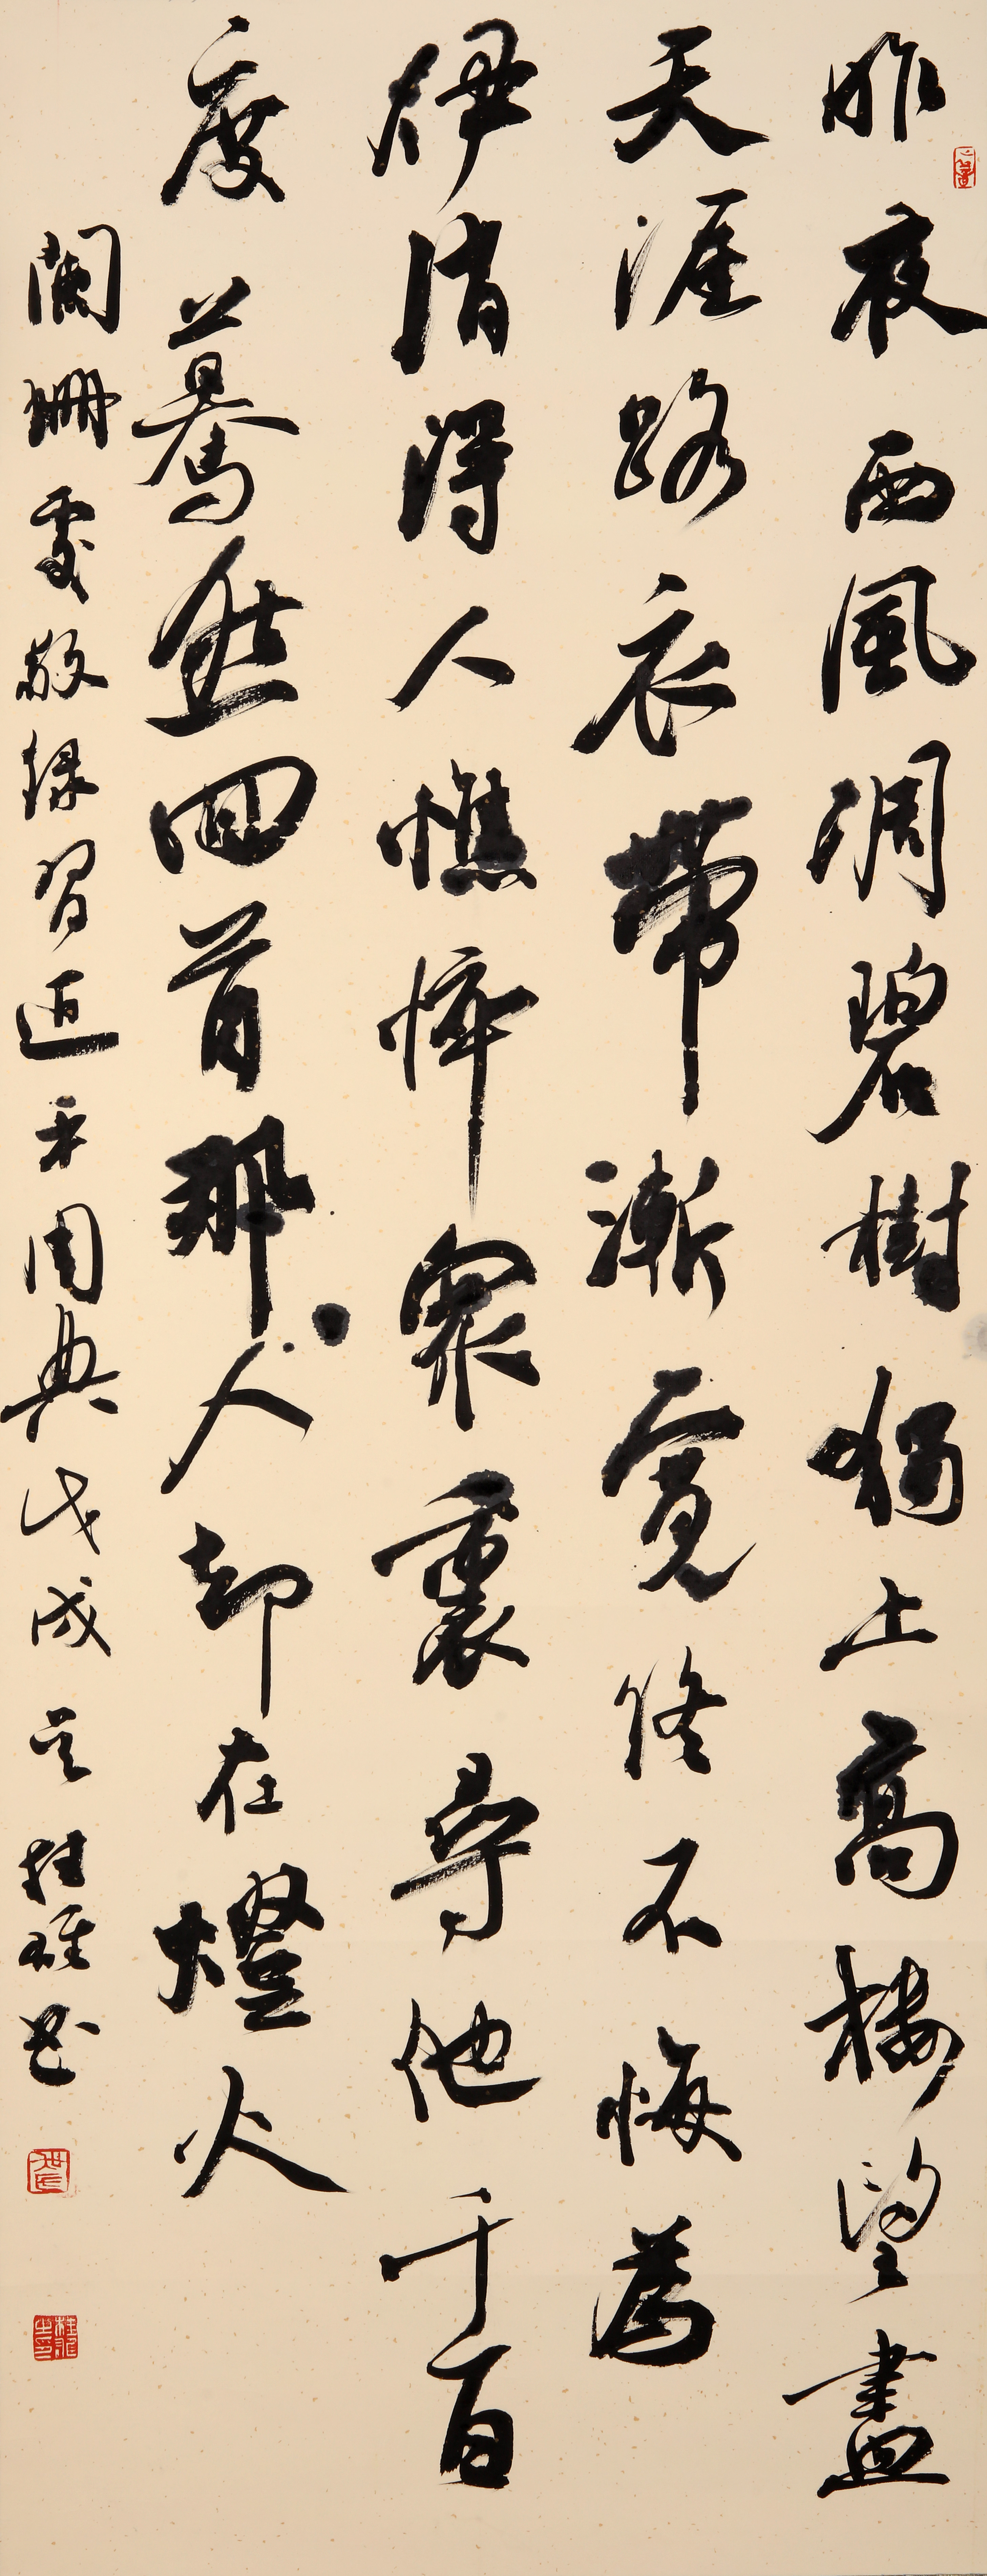 昨夜西風凋碧樹獨上高樓望盡
天涯路衣帶漸寬終不悔為
伊消得人憔悴眾裏尋他千百
度驀然回首那人卻在燈火
闌珊處敬錄習近平用典戊戌之桂雄書